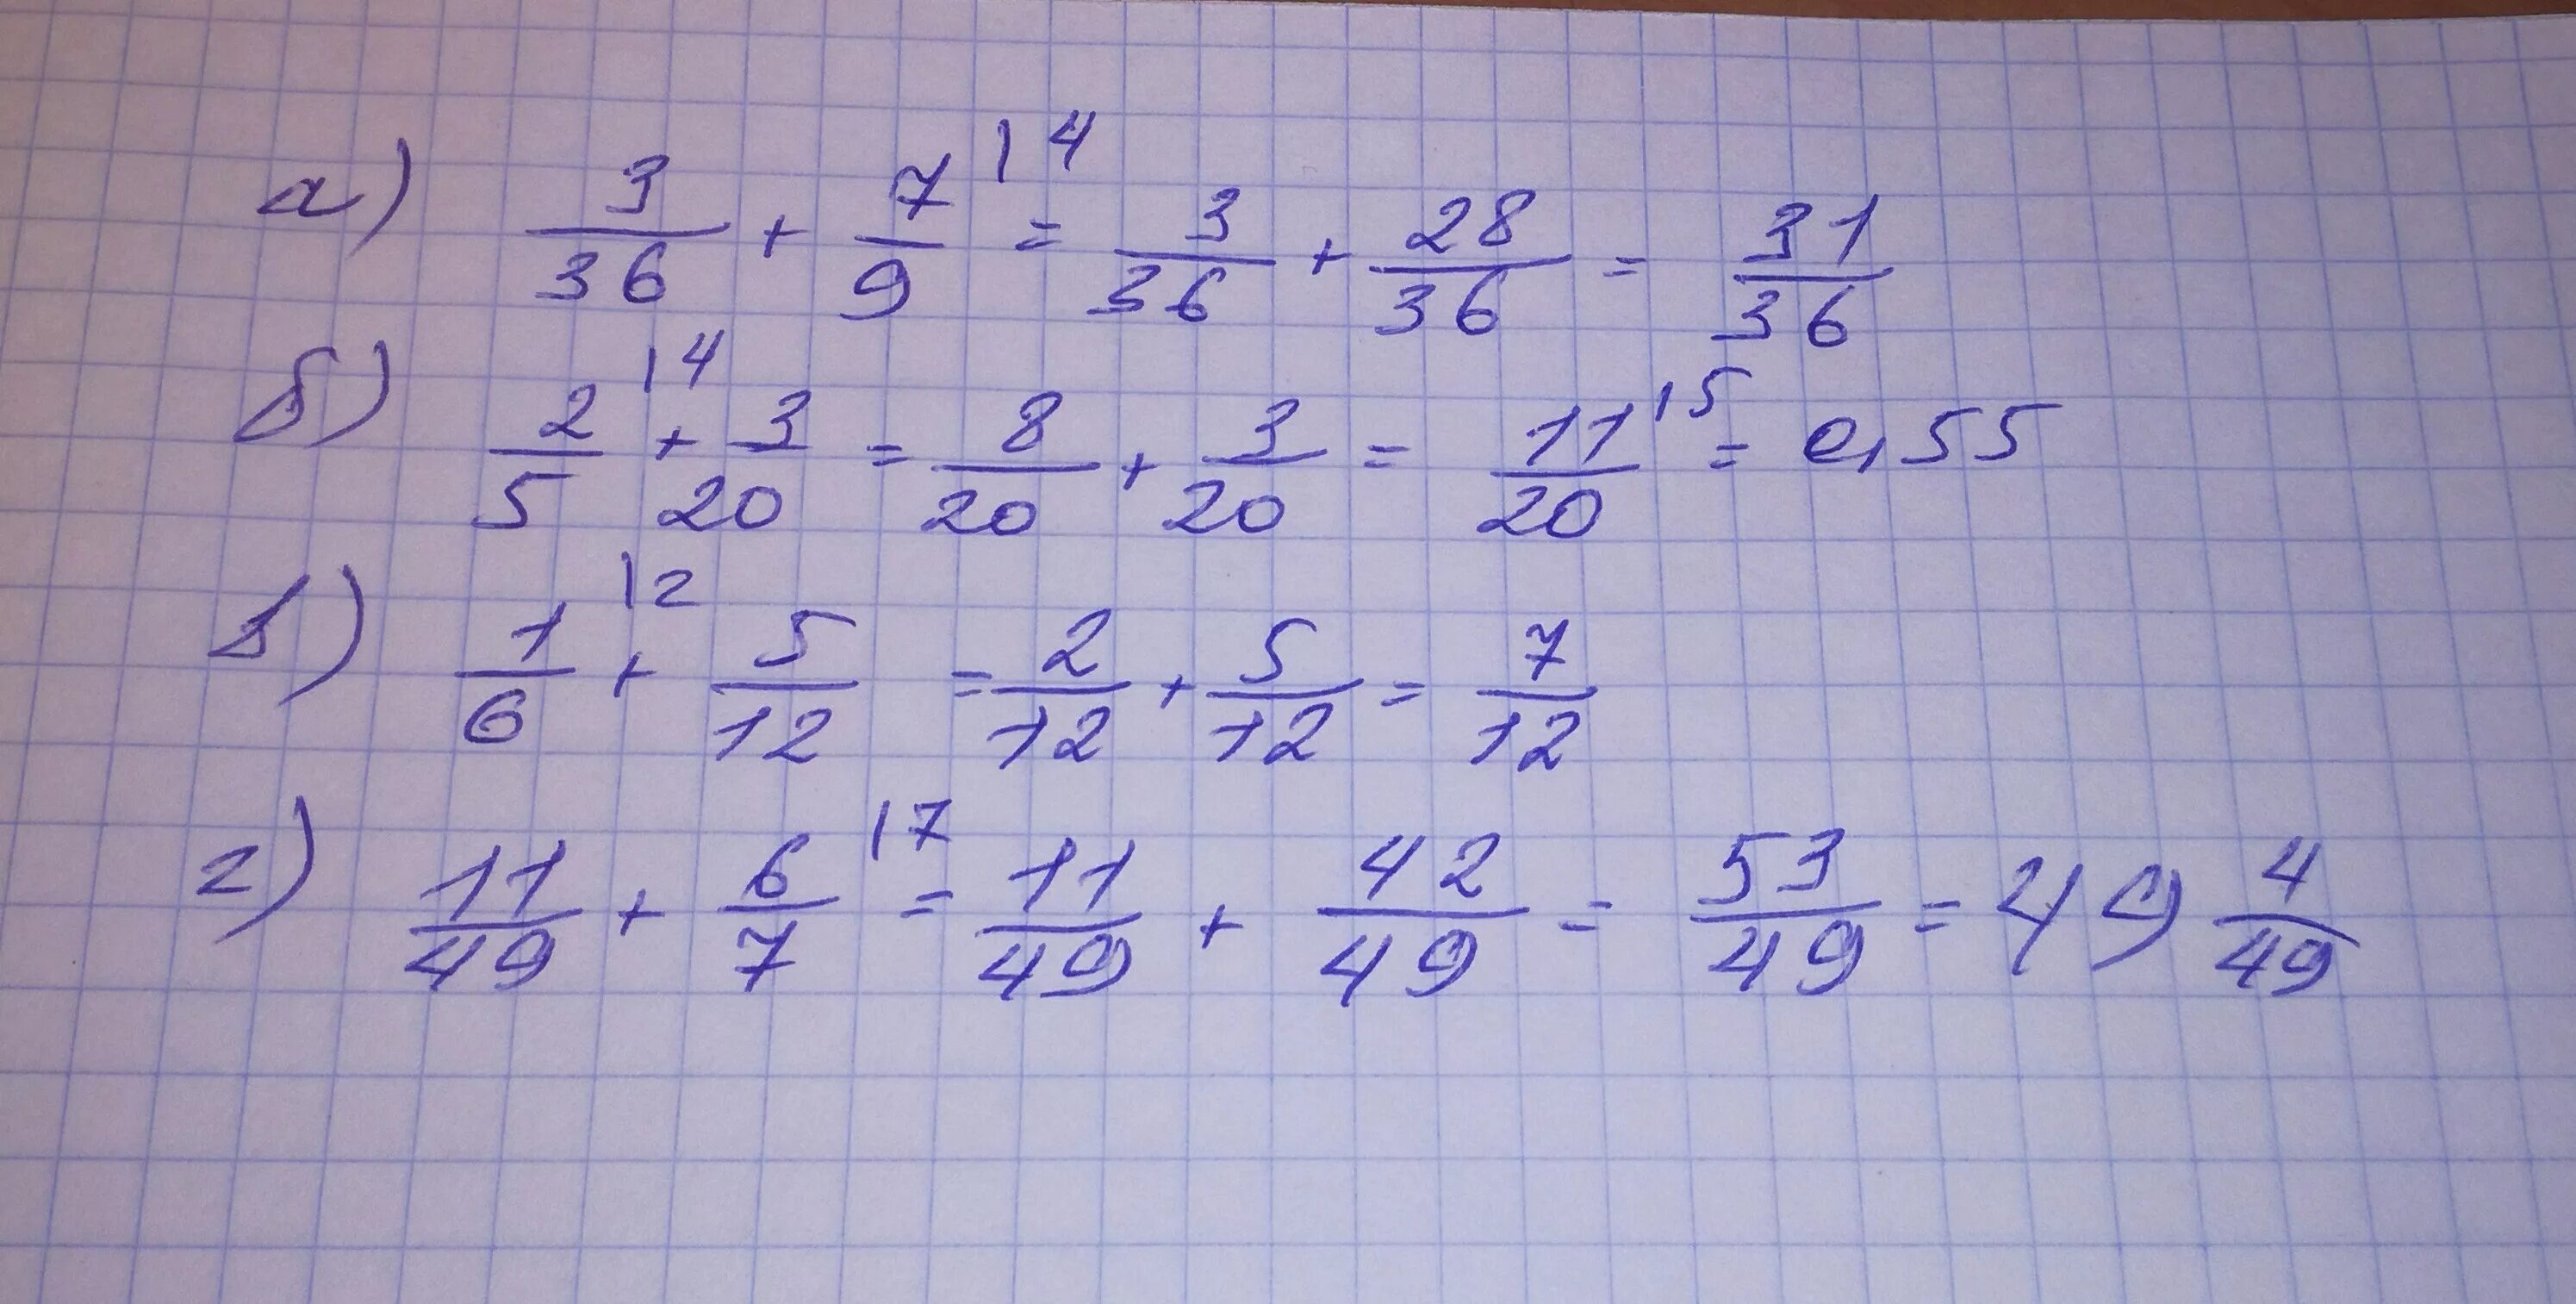 а) 3/36 + 7/9 |4 = 3/36 + 28/36 = 31/36
б) 2/5 |4 + 3/20 = 8/20 + 3/20 = 11/20 |5 = 0,55
в) 1/6 |2 + 5/12 = 2/12 + 5/12 = 7/12
г) 11/49 + 6/7 |7 = 11/49 + 42/49 = 53/49 = 49 4/49